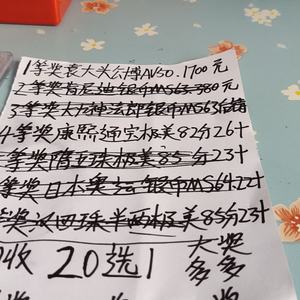 1等奖袁大头公博AU50.1700元
2等奖肯尼迪银币MS63 380元
4等奖康熙通宝极美82分26十
等奖隋五珠极美85分23十
等奖日本奥运银币MS64 22十
奖汉四珠半两极美85分23十
收 20选1 大奖
多多